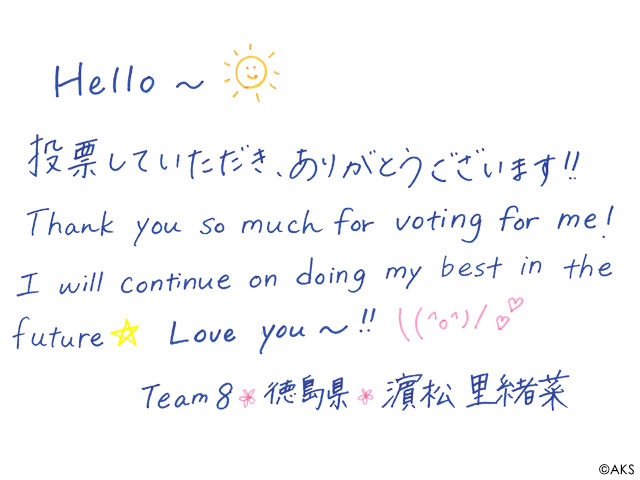 Hello ~
投票していただき、ありがとうございます!!
Thank you so much for voting for me!
I will continue on doing my best in the
future☆ Love you~!! \(^o^)/♡♡
Team 8 * 徳島県 * 濵松 里緒菜
©AKS